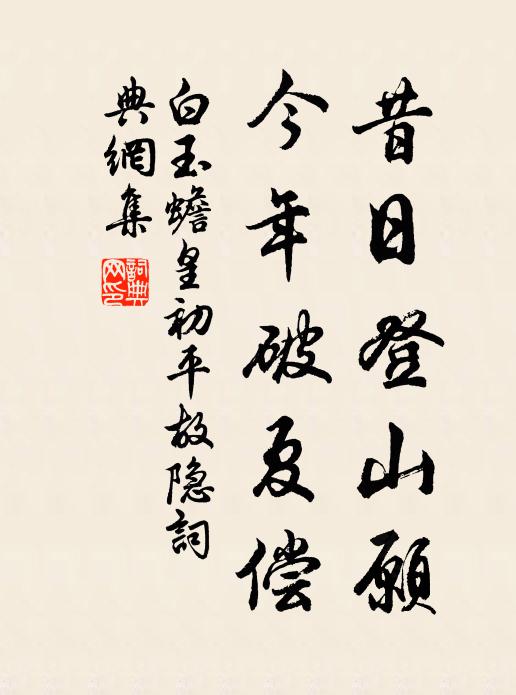 昔日登山願
今年破夏偿
白玉蟾皇初平故隐詞
典網集
詞典网印